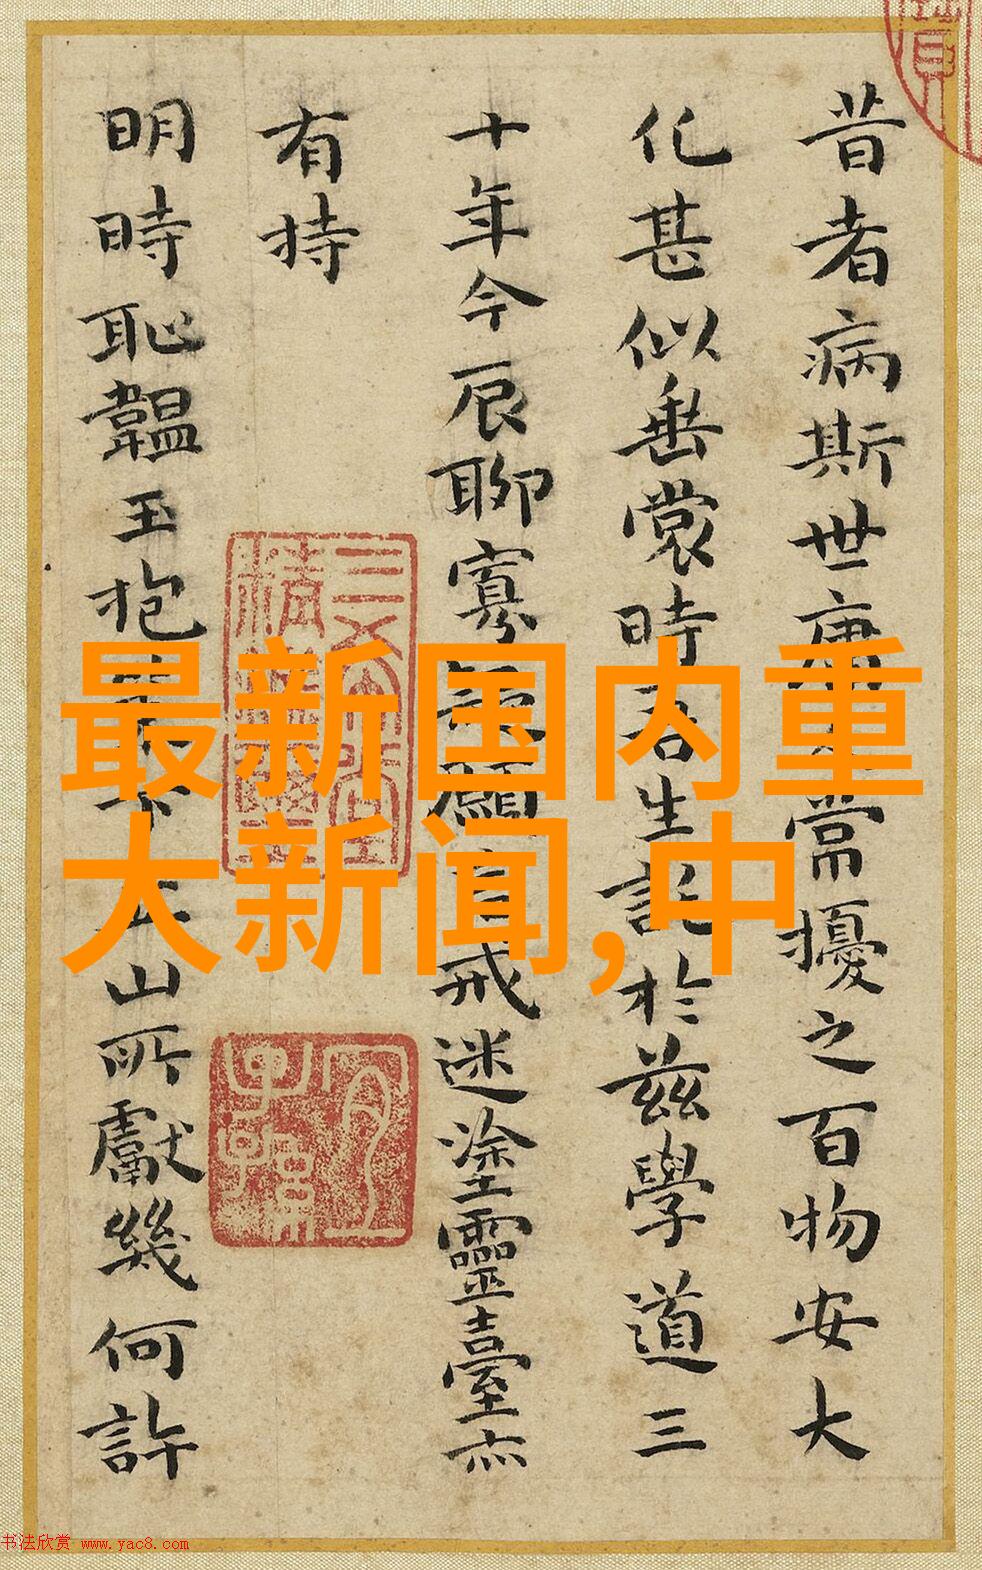 昔者病斯世庸
常擾之百物安大
化甚似垂裳時吾生託於茲學道三
十年今辰聊寡
願言戒迷塗靈臺亦
有持
明時恥韞玉抱
山所獻幾何許
最新国内重
大新闻,中
书法欣赏 www.yac8.com